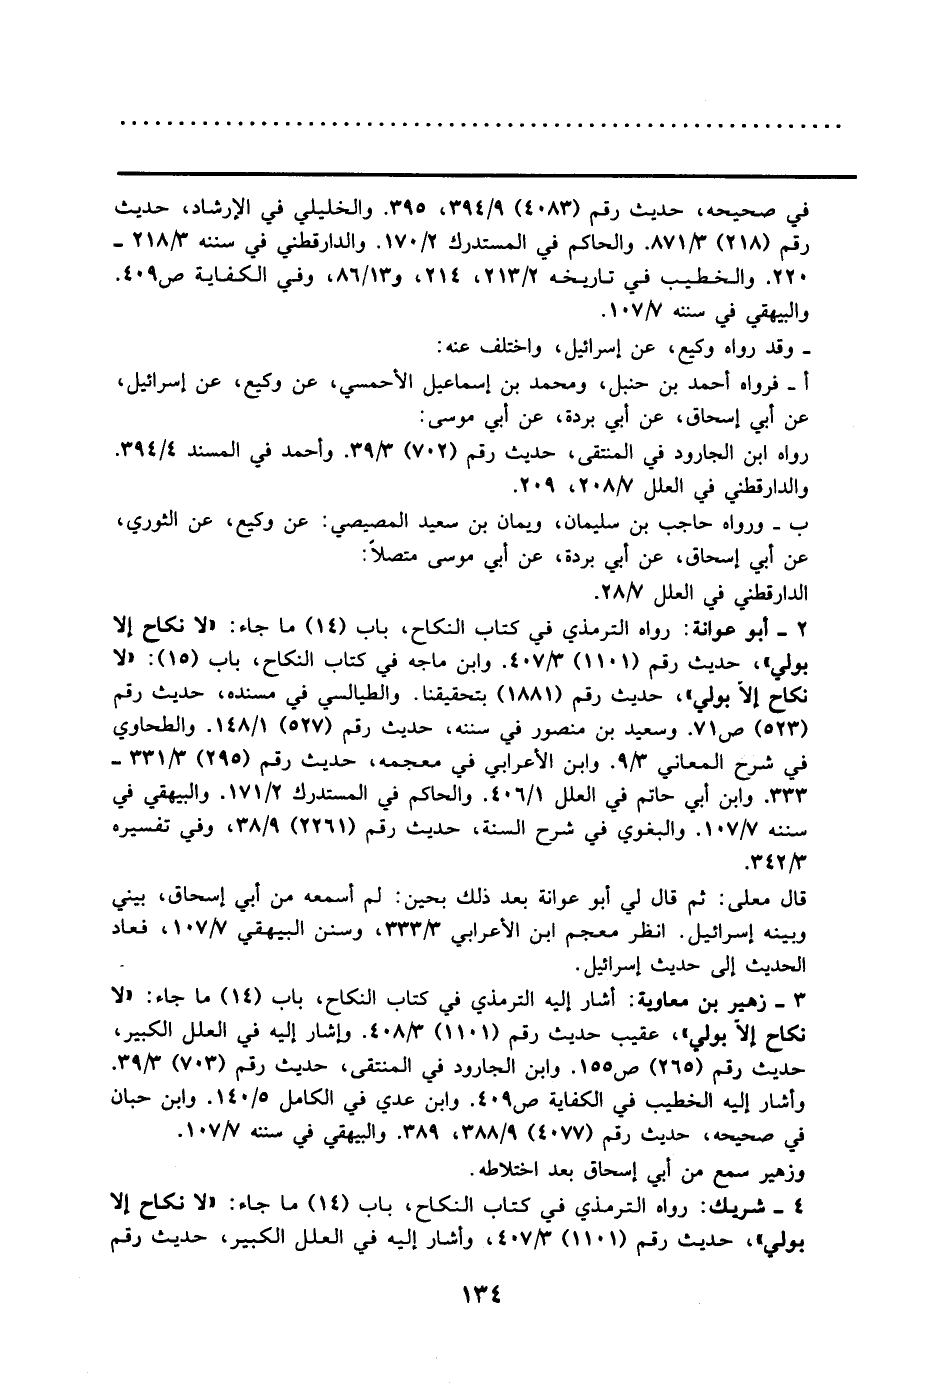 في صحيحه، حديث رقم (٤٠٨٣) ٣٩٤/٩، ٣٩٥. والخليلي في الإرشاد، حديث
رقم (٢١٨) ٨٧١/٣. والحاكم في المستدرك ١٧٠/٢. والدارقطني في سننه ٢١٨/٣ ـ
٢٢٠. والخطيب في تاريخه ٢١٣/٢، ٢١٤، و٨٦/١٣، وفي الكفاية ص٤٠٩.
والبيهقي في سننه ١٠٧/٧.
ـ وقد رواه وكيع، عن إسرائيل، واختلف عنه:
أ ـ فرواه أحمد بن حنبل، ومحمد بن إسماعيل الأحمسي، عن وكيع، عن إسرائيل،
عن أبي إسحاق، عن أبي بردة، عن أبي موسى:
رواه ابن الجارود في المنتقى، حديث رقم (٧٠٢) ٣٩/٣. وأحمد في المسند ٣٩٤/٤.
والدارقطني في العلل ٢٠٨/٧، ٢٠٩.
ب ـ ورواه حاجب بن سليمان، ويمان بن سعيد المصيصي: عن وكيع، عن الثوري،
عن أبي إسحاق، عن أبي بردة، عن أبي موسى متصلاً:
الدارقطني في العلل ٢٨/٧.
٢ ـ أبو عوانة: رواه الترمذي في كتاب النكاح، باب (١٤) ما جاء: «لا نكاح إلا
بولي»، حديث رقم (١١٠١) ٤٠٧/٣. وابن ماجه في كتاب النكاح، باب (١٥): «لا
نكاح إلاّ بولي»، حديث رقم (١٨٨١) بتحقيقنا. والطيالسي في مسنده، حديث رقم
(٥٢٣) ص٧١. وسعيد بن منصور في سننه، حديث رقم (٥٢٧) ١٤٨/١. والطحاوي
في شرح المعاني ٩/٣. وابن الأعرابي في معجمه، حديث رقم (٢٩٥) ٣٣١/٣ ـ
٣٣٣. وابن أبي حاتم في العلل ٤٠٦/١. والحاكم في المستدرك ١٧١/٢. والبيهقي في
سننه ١٠٧/٧. والبغوي في شرح السنة، حديث رقم (٢٢٦١) ٣٨/٩، وفي تفسيره
٣٤٢/٣.
قال معلى: ثم قال لي أبو عوانة بعد ذلك بحين: لم أسمعه من أبي إسحاق، بيني
وبينه إسرائيل. انظر معجم ابن الأعرابي ٣٣٣/٣، وسنن البيهقي ١٠٧/٧، فعاد
الحديث إلى حديث إسرائيل.
٣ ـ زهير بن معاوية: أشار إليه الترمذي في كتاب النكاح، باب (١٤) ما جاء: «لا
نكاح إلاّ بولي»، عقيب حديث رقم (١١٠١) ٤٠٨/٣. وإشار إليه في العلل الكبير،
حديث رقم (٢٦٥) ص١٥٥. وابن الجارود في المنتقى، حديث رقم (٧٠٣) ٣٩/٣.
وأشار إليه الخطيب في الكفاية ص٤٠٩. وابن عدي في الكامل ١٤٠/٥. وابن حبان
في صحيحه، حديث رقم (٤٠٧٧) ٣٨٨/٩، ٣٨٩. والبيهقي في سننه ١٠٧/٧.
وزهير سمع من أبي إسحاق بعد اختلاطه.
٤ ـ شريك: رواه الترمذي في كتاب النكاح، باب (١٤) ما جاء: «لا نكاح إلا
بولي»، حديث رقم (١١٠١) ٤٠٧/٣، وأشار إليه في العلل الكبير، حديث رقم
١٣٤